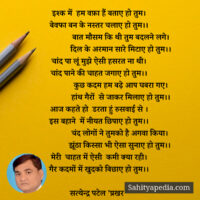 इश्क में हम वफ़ा हैं बताए हो तुम।
बेवफा बन के नस्तर चलाए हो तुम।।
बात मौसम कि थी तुम बदलने लगे।
दिल के अरमान सारे मिटाए हो तुम।।
चांद पा लूं मुझे ऐसी हसरत ना थी।
चांद पाने की चाहत जगाए हो तुम।।
कुछ कदम हम बढ़े आप घबरा गए।
हांथ गैरों से जाकर मिलाए हो तुम।।
आज कहते हो डरता हूं रुसवाई से ।
इस बहाने में नीयत छिपाए हो तुम।।
चंद लोगों ने तुमको है अगवा किया।
झूंठा किस्सा भी ऐसा सुनाए हो तुम।।
मेरी चाहत में ऐसी कमी क्या रही।
गैर कदमों में खुदको बिछाए हो तुम।।
सत्येन्द्र पटेल 'प्रखर'
Sahityapedia.com